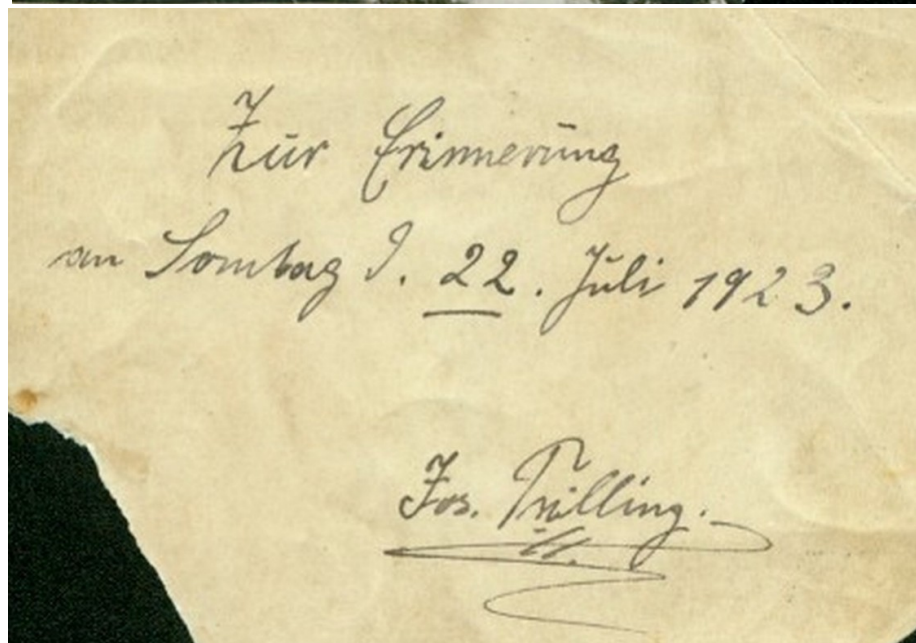 Zur Erinnerung
an Sonntag d. 22. Juli 1923.
Jos. Trilling.